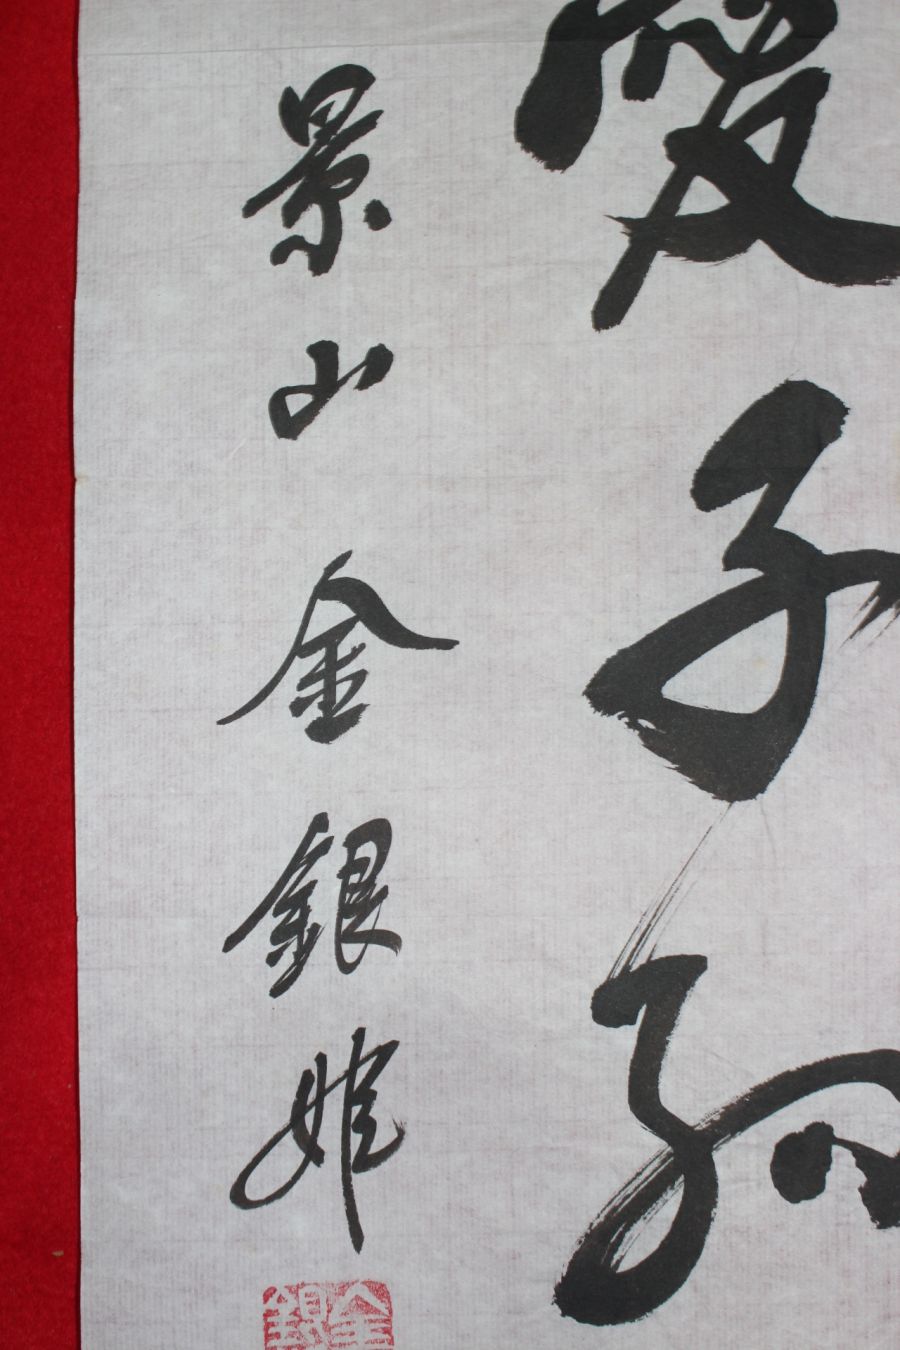 愛子孫
景山金銀姬
金
銀